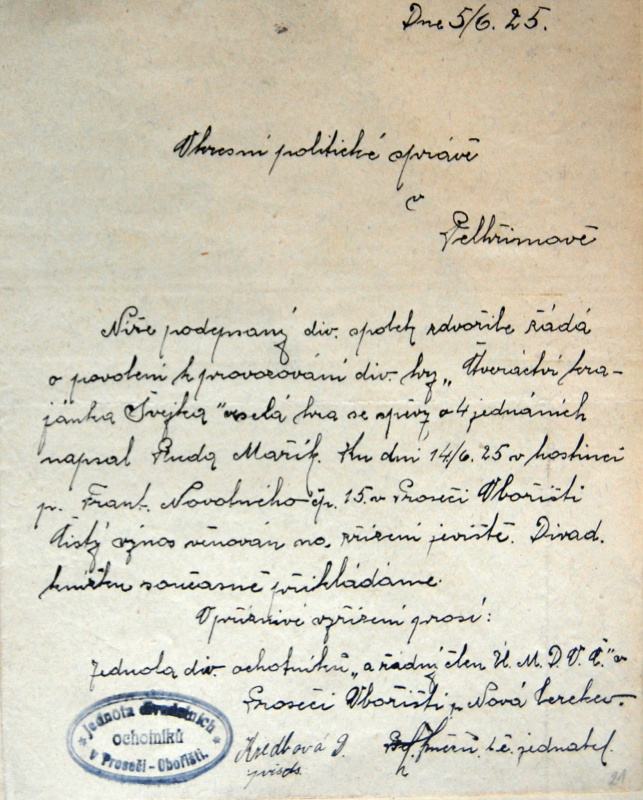 Dne 5/6. 25.
Okresní politické správě
v
Pelhřimově
Níže podepsaný div. spolek zdvořile žádá
o povolení k provozování div. hry „Čtveráctví kra-
jánka Švejka" veselá hra se zpěvy o 4 jednáních
napsal Ruda Mařík. Ku dni 14/6. 25 v hostinci
p. Frant. Novotného čp. 15. v Proseči Obořišti
Čistý výnos věnován na zřízení jeviště. Divad.
knížku současně přikládáme.
O příznivé vyřízení prosí:
Jednota div. ochotníků „a řádný člen Ú. M. D. O. Č." v
Proseči Obořišti p. Nová Cerekev.
Jednota divadelních
ochotníků
v Proseči-Obořišti.
jednatel.
21